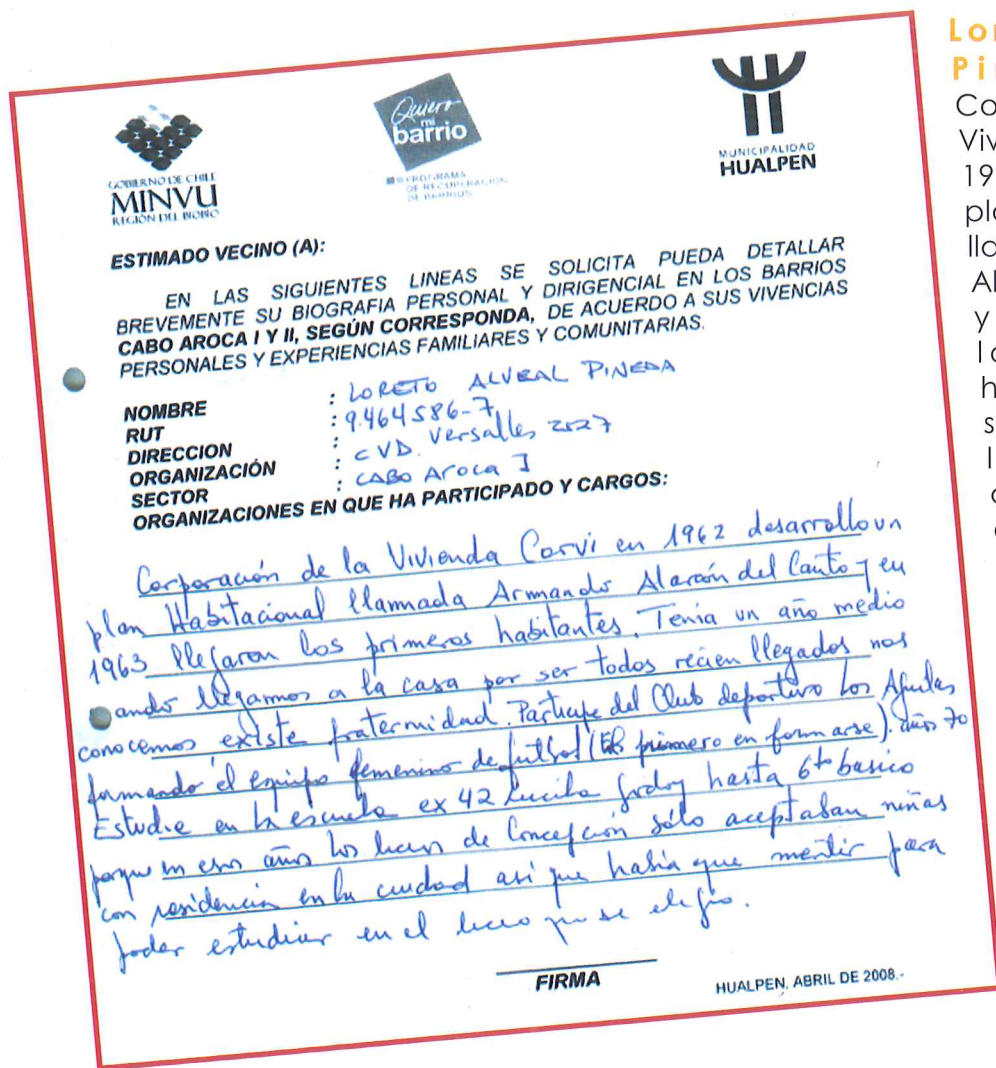 GOBIERNO DE CHILE
MINVU
REGIÓN DEL BIOBIO
Quiero
mi
barrio
PROGRAMA
DE RECUPERACION
DE BARRIOS
MUNICIPALIDAD
HUALPEN
ESTIMADO VECINO (A):
EN LAS SIGUIENTES LINEAS SE SOLICITA PUEDA DETALLAR
BREVEMENTE SU BIOGRAFIA PERSONAL Y DIRIGENCIAL EN LOS BARRIOS
CABO AROCA I Y II, SEGÚN CORRESPONDA, DE ACUERDO A SUS VIVENCIAS
PERSONALES Y EXPERIENCIAS FAMILIARES Y COMUNITARIAS.
NOMBRE : LORETO ALVEAL PINEDA
RUT : 9.464586-7
DIRECCION : CVD. Versalles 2527
ORGANIZACIÓN :
SECTOR : CABO Aroca I
ORGANIZACIONES EN QUE HA PARTICIPADO Y CARGOS:
Corporación de la Vivienda Corvi en 1962 desarrollo un
plan Habitacional llamada Armando Alarcón del Canto y en
1963 llegaron los primeros habitantes. Tenia un año medio
ando llegamos a la casa por ser todos recien llegados nos
conocemos existe fraternidad. Participe del Club deportivo Los Aguilas
formando el equipo femenino de futbol (El primero en formarse). años 70
Estudie en la escuela ex 42 Lucila Godoy hasta 6to basico
porque en esos años los liceos de Concepción sólo aceptaban niñas
con residencia en la ciudad asi que habia que mentir para
poder estudiar en el liceo que se elegio.
FIRMA
HUALPEN, ABRIL DE 2008.-
Lo
Pi
Co
Viv
19
pla
lla
Al
y
la
h
s
l